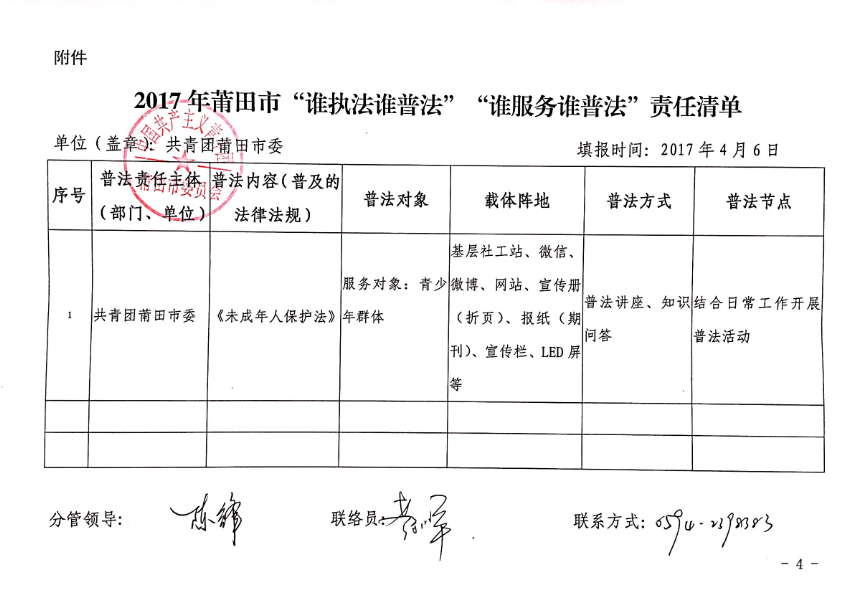 附件
2017年莆田市“谁执法谁普法”“谁服务谁普法”责任清单
单位（盖章）：共青团莆田市委 填报时间：2017年4月6日
序号 普法责任主体（部门、单位） 普法内容（普及的法律法规） 普法对象 载体阵地 普法方式 普法节点
1 共青团莆田市委 《未成年人保护法》 服务对象：青少年群体 基层社工站、微信、微博、网站、宣传册（折页）、报纸（期刊）、宣传栏、LED屏等 普法讲座、知识问答 结合日常工作开展普法活动
中国共产主义青年团
莆田市委员会
分管领导： 联络员： 联系方式：0594-2398383
- 4 -